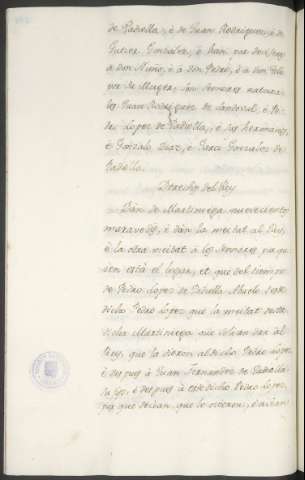 de Padiella, é de Juan Rodriguez, é de
Gutier Gonzalez, é han por deviseros
a don Nuño, é a don Pedro, é a don Lope
de Muxica, son deviseros naturales
Juan Rodriguez de Sandoval, é Pe-
dro Lopez de Padiella, é sus hermanos,
é Gonzalo Diaz, é Garci Gonzalez de
Padiella.
Derechos del Rey
Dan de Martiniega nuevecientos
maravedis, é dan la meitat al Rey,
é la otra meitat á los deviseros, por
el logar, et que del tiempo
de Pedro Lopez de Padiella Abuelo deste
dicho Pedro Lopez que la meitat desta
dicha Martiniega que solian dar al
Rey, que la dieron al dicho Pedro Lopez
é despues á Juan Fernandez de Padiella
su fijo, é despues á este dicho Pedro Lopez,
por que decian, que lo ovieron, é avian